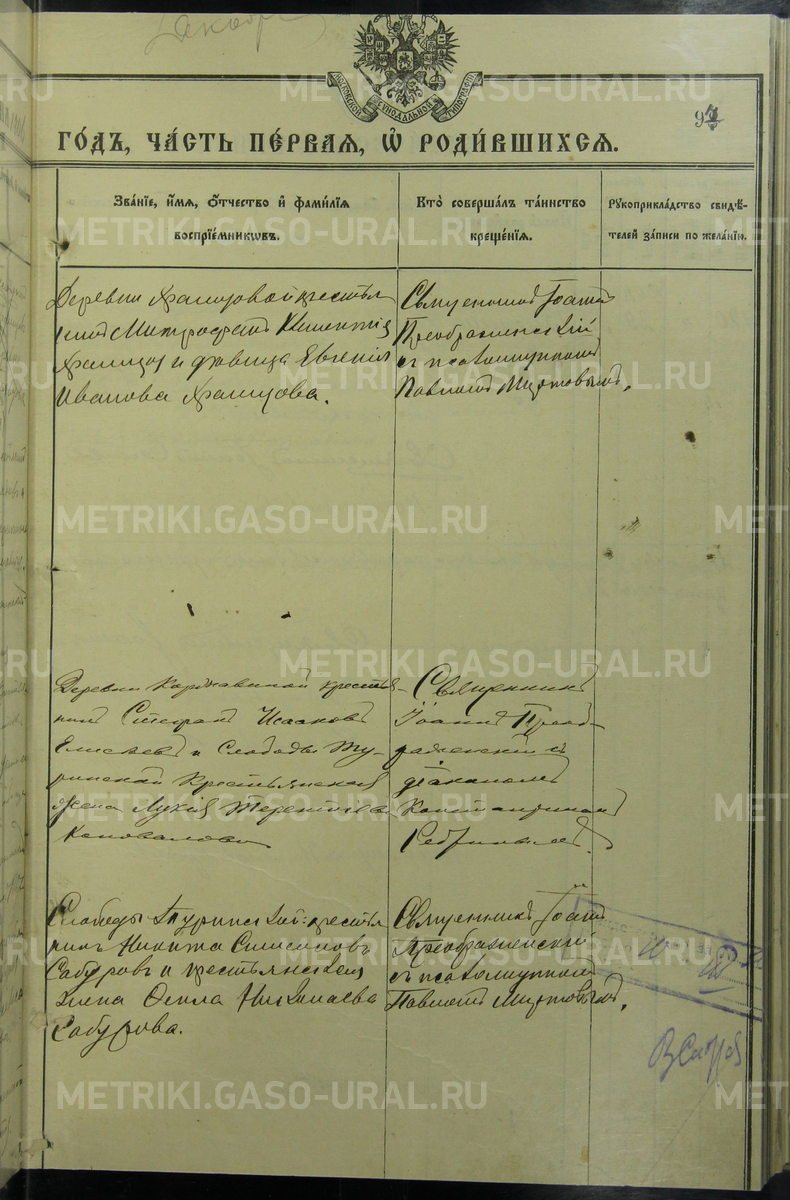 Декабрь
МОСКОВСКОЙ СѴНОДАЛЬНОЙ ТИПОГРАФІИ
ГОДЪ, ЧАСТЬ ПЕРВАЯ, Ѡ РОДИВШИХСЯ.
Званіе, имя, отчество и фамилія воспріемниковъ.
Кто совершалъ таинство крещенія.
Рукоприкладство свидѣтелей записи по желанію.
Деревни Храмцовой крестья
нинъ Митрофанъ
Храмцов и дѣвица Евгенія
Иванова Храмцова.
Священникъ Іоаннъ
Преображенскій
съ псаломщикомъ
Павломъ Миртовымъ.
Деревни Коржавиной крестья-
нинъ Стефанъ Исааковъ
Елисѣевъ и Слободы Ту-
ринской крестьянская
жена Лукія Терентьева
Коновалова
Священникъ
Іоаннъ Преоб-
раженскій съ
діакономъ
Константиномъ
Слободы Туринской крестья
нинъ Никита Симеоновъ
Сабуровъ и крестьянская
жена Николаева
Сабурова.
Священникъ Іоаннъ
Преображенскій
съ псаломщикомъ
Павломъ Миртовымъ.
METRIKI.GASO-URAL.RU